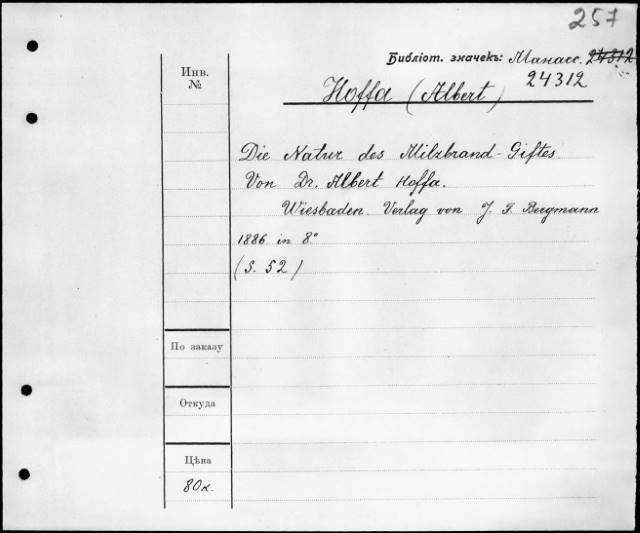 257
Библіот. значекъ: Манасс. 24312
24312
Инв.
№
Hoffa (Albert)
Die Natur des Milzbrand-Giftes.
Von Dr. Albert Hoffa.
Wiesbaden. Verlag von J. F. Bergmann
1886. in 8°
(S. 52)
По заказу
Откуда
Цѣна
80к.